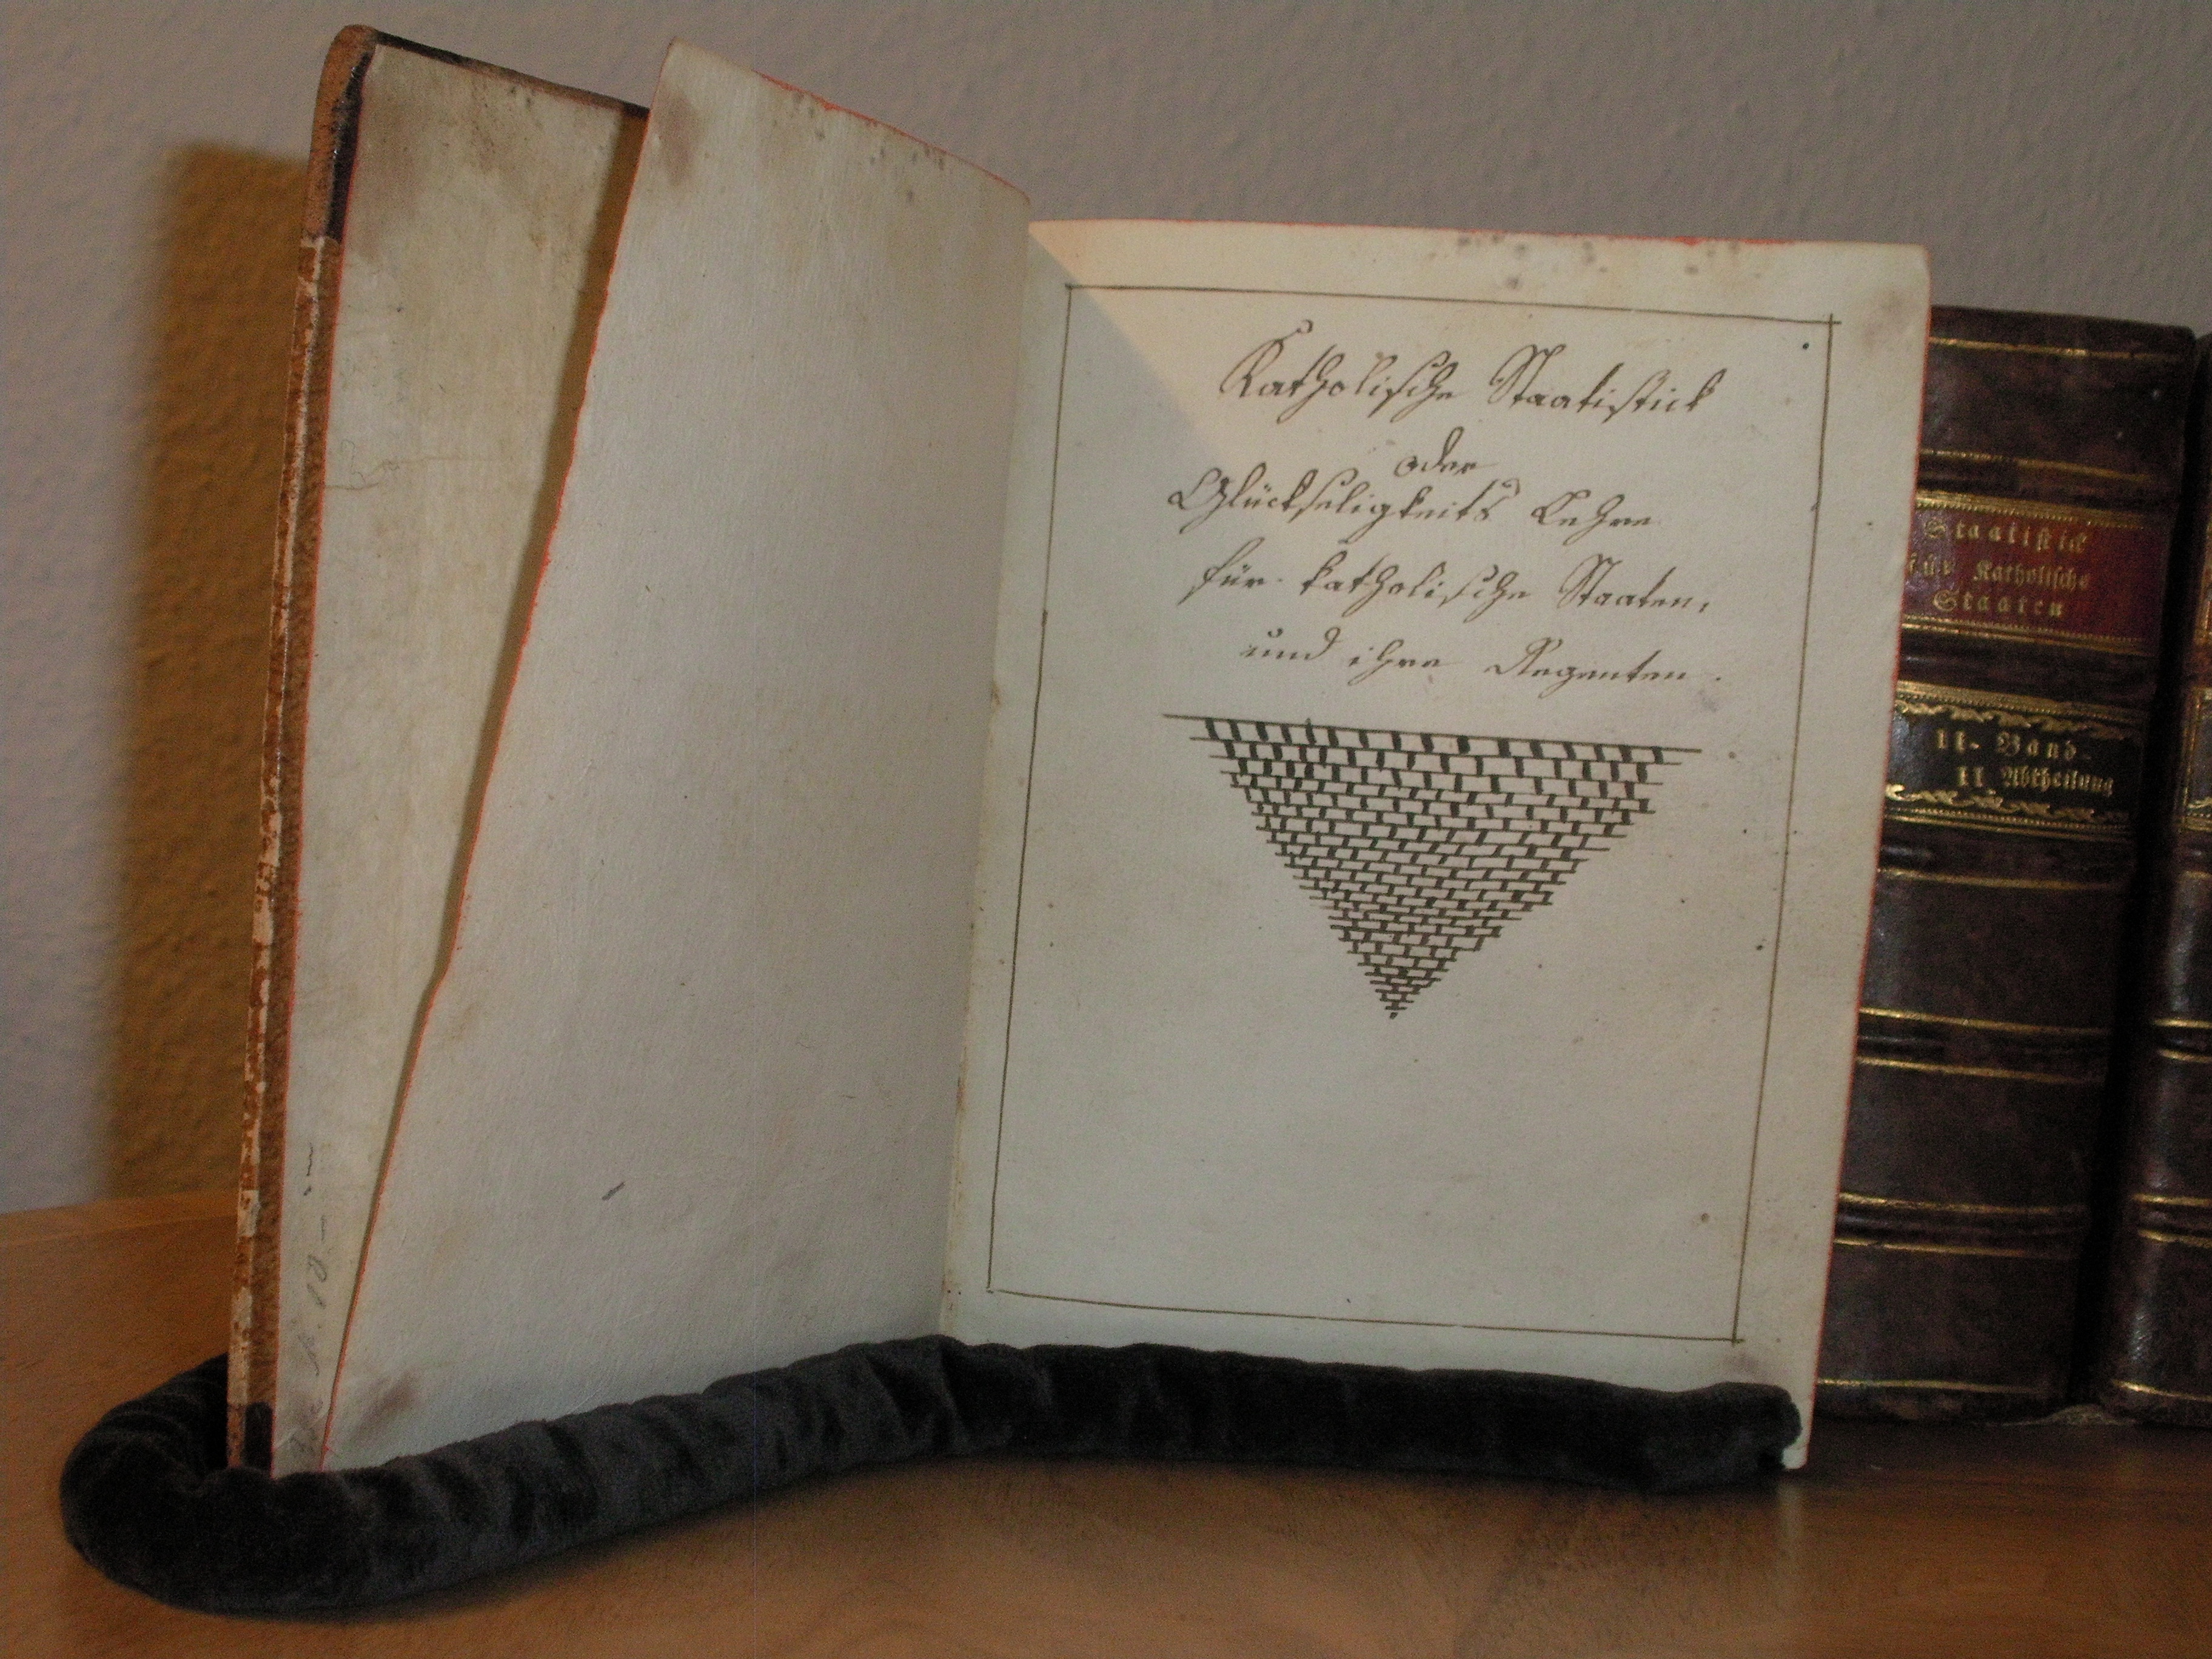 Katholische Staatistick
oder
Glückseligkeits Lehre
für katholische Staaten,
und ihre Regenten.
Staatistick
für Katholische
Staaten
II. Band
II Abtheilung